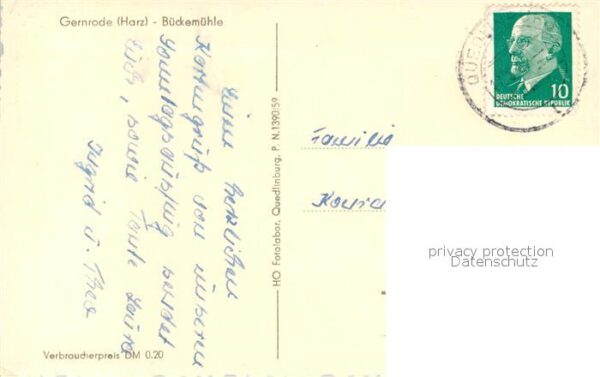 Gernrode (Harz) - Bückemühle
Einen herzlichen
Kartengruß von unserem
Sonntagsausflug sendet
Euch, sowie Tante
Ingrid u. Theo
Verbraucherpreis DM 0.20
HO Fotolabor, Quedlinburg. P. N.1390/59
QUE
10
DEUTSCHE
DEMOKRATISCHE REPUBLIK
Familie
privacy protection
Datenschutz